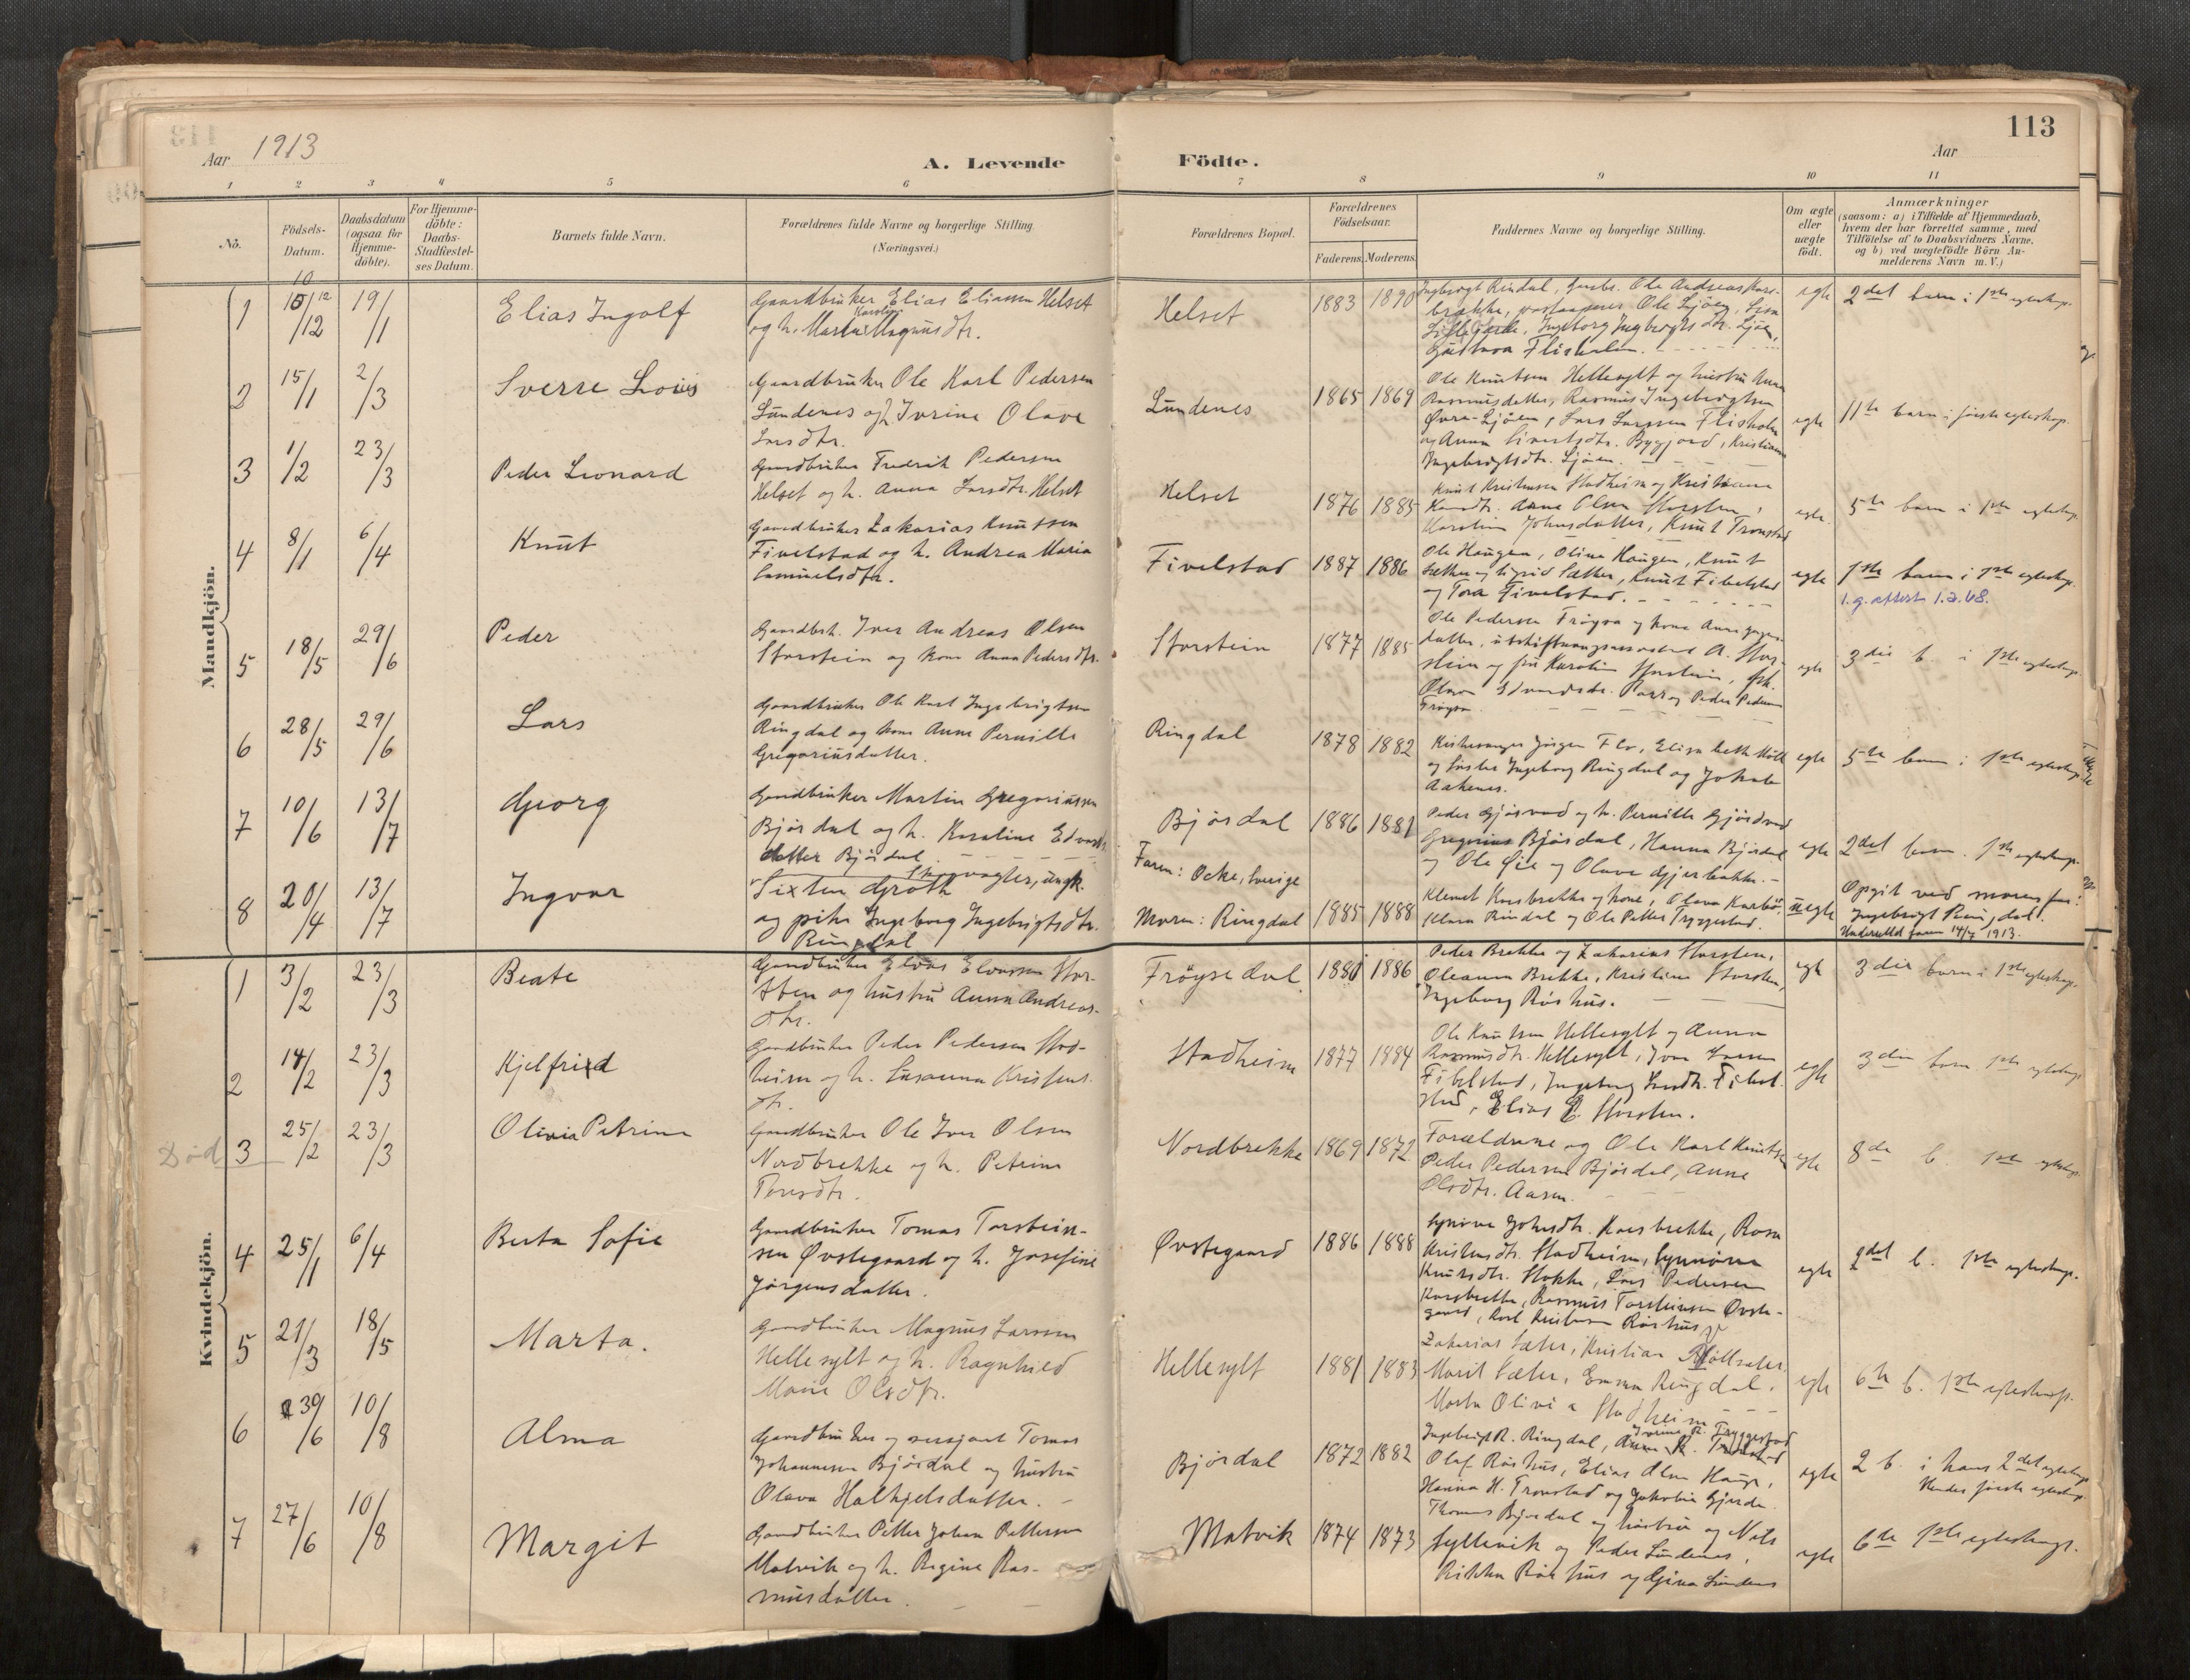 113
Aar 1913
A. Levende Födte.
Aar
1 2 3 4 5 6 7 8 9 10 11
No.
Födsels-
Datum.
Daabsdatum
(ogsaa for
Hjemme-
döbte).
For Hjemme-
döbte:
Daabs-
Stadfæstel-
ses Datum.
Barnets fulde Navn.
Forældrenes fulde Navne og borgerlige Stilling
(Næringsvei.)
Forældrenes Bopæl.
Forældrenes
Födselsaar.
Faderens. Moderens.
Faddernes Navne og borgerlige Stilling.
Om ægte
eller
uægte
födt.
Anmærkninger
(saasom: a) i Tilfælde af Hjemmedaab,
hvem der har forrettet samme, med
Tilföielse af to Daabsvidners Navne,
og b) ved uægtefödte Börn An-
melderens Navn m.V.)
Mandkjön.
1
10
/12
19/1
Elias Ingolf
Gaardbruker Elias Eliassen Helset
Karoline
og h. Marta Magnusdtr.
Helset
1883 1890
Ole Andreas Kors-
brekke, Ole Ljöen,
Ingeborg Ingebrigtsdtr. Ljöen,
Gustava Flisholm.
egte
2det barn i 1ste egteskap.
2
15/1
2/3
Sverre Louis
Gaardbruker Ole Karl Pedersen
Lundenes og h. Ivrine Olave
Larsdtr.
Lundenes
1865 1869
Ole Knutsen Hellesylt og hustru Anna
Rasmusdatter, Rasmus Ingebrigtsen
Øvre-Ljöen, Lars Larssen Flisholm
og Anna Sivertsdtr. Bygjord, Kristianna
Ingebrigtsdtr. Ljöen.
egte
11te barn i förste egteskap.
3
1/2
23/3
Peder Leonard
Gaardbruker Fredrik Pedersen
Helset og h. Anna Larsdtr. Helset
Helset
1876 1885
Knut Kristensen Stadheim og Kristiane
Anne Olsen Storsten,
Karolina Johnsdatter, Knut Tronstad
egte.
5te barn i 1ste egteskap.
4
8/1
6/4
Knut
Gaardbruker Zakarias Knutssen
Fivelstad og h. Andrea Maria
Samuelsdtr.
Fivelstad
1887 1886
Ole Haugen, Oline Haugen, Knut
Sætter og Sigrid Sætter, Knut Fibelstad
og Tora Fivelstad.
egte
1ste barn i 1ste egteskap.
l.g. attest 1.2.68.
5
18/5
29/6
Peder
Gaardbr. Iver Andreas Olsen
Storstein og kone Anna Pedersdtr.
Storstein
1877 1885
Ole Pedersen Fröysa og kone Anne
datter, utskiftningsassistent A. Stor-
stein og fru Karoline Storstein,
Olava Edvardsdtr. og Peder Pedersen
Fröysa
egte
3die b. i 1ste egteskap.
6
28/5
29/6
Lars
Gaardbruker Ole Karl Ingebrigtsen
Ringdal og kone Anne Pernille
Gregoriusdatter.
Ringdal
1878 1882
Kirkesanger Jörgen Flo, Elisabeth
og söster Ingeborg Ringdal og Jokobe
Aakenes.
egte
5te barn i 1ste egteskap.
7
10/6
13/7
Georg
Gaardbruker Martin Gregoriussen
Björdal og h. Karoline Edvards
datter Björdal.
Björdal
1886 1881
Peder Gjörvad og h. Pernille Gjörvad
Gregorius Björdal, Hanna Björdal
og Ole Øie og Olave Gjerbakke.
egte
2det barn. 1ste egteskap.
8
20/4
13/7
Ingvar
Skogvogter, ungk.
Sixten Groth
og pike Ingeborg Ingebrigtsdtr.
Ringdal
Faren: Ocke, Sverige
Moren: Ringdal
1885 1888
Klemet Korsbrekke og kone, Olava Karbö,
Klara Rindal og Ole Petter Tryggestad.
uegte
Opgit ved morens far:
Ingebrigt Ringdal.
Underrettet faren 14/7 1913.
Kvindekjön.
1
3/2
23/3
Beate
Gaardbruker Elias Eliassen Stor-
sten og hustru Anna Andreas-
dtr.
Fröysedal
1881 1886
Peder Brekke og Zakarias Storsten,
Oleanna Brekke, Kristine Storsten,
Ingeborg Röshus.
egte
3die barn i 1ste egteskap.
2
14/2
23/3
Kjelfrid
Gaardbruker Peder Pedersen Stad-
heim og h. Susanna Kristens.
dtr.
Stadheim
1877 1884
Ole Knutsen Hellesylt og Anna
Rasmusdtr. Hellesylt, Iver Larsen
Fibelstad, Ingeborg Larsdtr. Fibel-
stad, Elias E. Storsten.
egte
3die barn 1ste egteskap
Död
3
25/2
23/3
Olivia Petrine
Gaardbruker Ole Iver Olsen
Nordbrekke og h. Petrine
Toresdtr.
Nordbrekke
1869 1872
Forældrene og Ole Karl Knutsen
Peder Pedersen Björdal, Anne
Olsdtr. Aasen.
egte
8de b. 1ste egteskap.
4
25/1
6/4
Berta Sofie
Gaardbruker Tomas Torstein-
sen Øvstegaard og h. Josefine
Jörgensdatter.
Øvstegaard
1886 1888
Synøve Johnsdtr. Korsbrekke, Rasm
Kristensdtr. Stadheim, Synnöve
Knutsdtr. Stokke, Lars Pedersen
Korsbrekke, Rasmus Torsteinsen Øvste-
gaard, Karl Kristensen Röshus
egte
2det b. 1ste egteskap.
5
21/3
18/5
Marta.
Gaardbruker Magnus Larssen
Hellesylt og h. Ragnhild
Marie Olsdtr.
Hellesylt
1881 1883
Zakarias Sæter, Kristian
Marit Sæter, Emma Ringdal,
Marta Olivia Stadheim
egte
6te b. 1ste egteskap.
6
30/6
10/8
Alma
Gaardbruker og sersjant Tomas
Johannesen Björdal og hustru
Olava Halkjelsdatter.
Björdal
1872 1882
Ivrine R. Tryggestad
Ingebrigt R. Ringdal, Anne R. Tronstad
Olaf Röshus, Elias Olsen Hauge,
Hanna H. Tronstad og Jakobia Gjerde.
egte
2 b. i hans 2det egteskap
Hendes förste egteskap.
7
27/6
10/8
Margit
Gaardbruker Petter Johan Pettersen
Matvik og h. Regine Ras-
musdatter.
Matvik
1874 1873
Thomas Björdal og hustru og Nils
Syltevik og Peder Lundenes,
Rikka Röshus og Gina Lundenes
egte
6te 1ste egteskap.